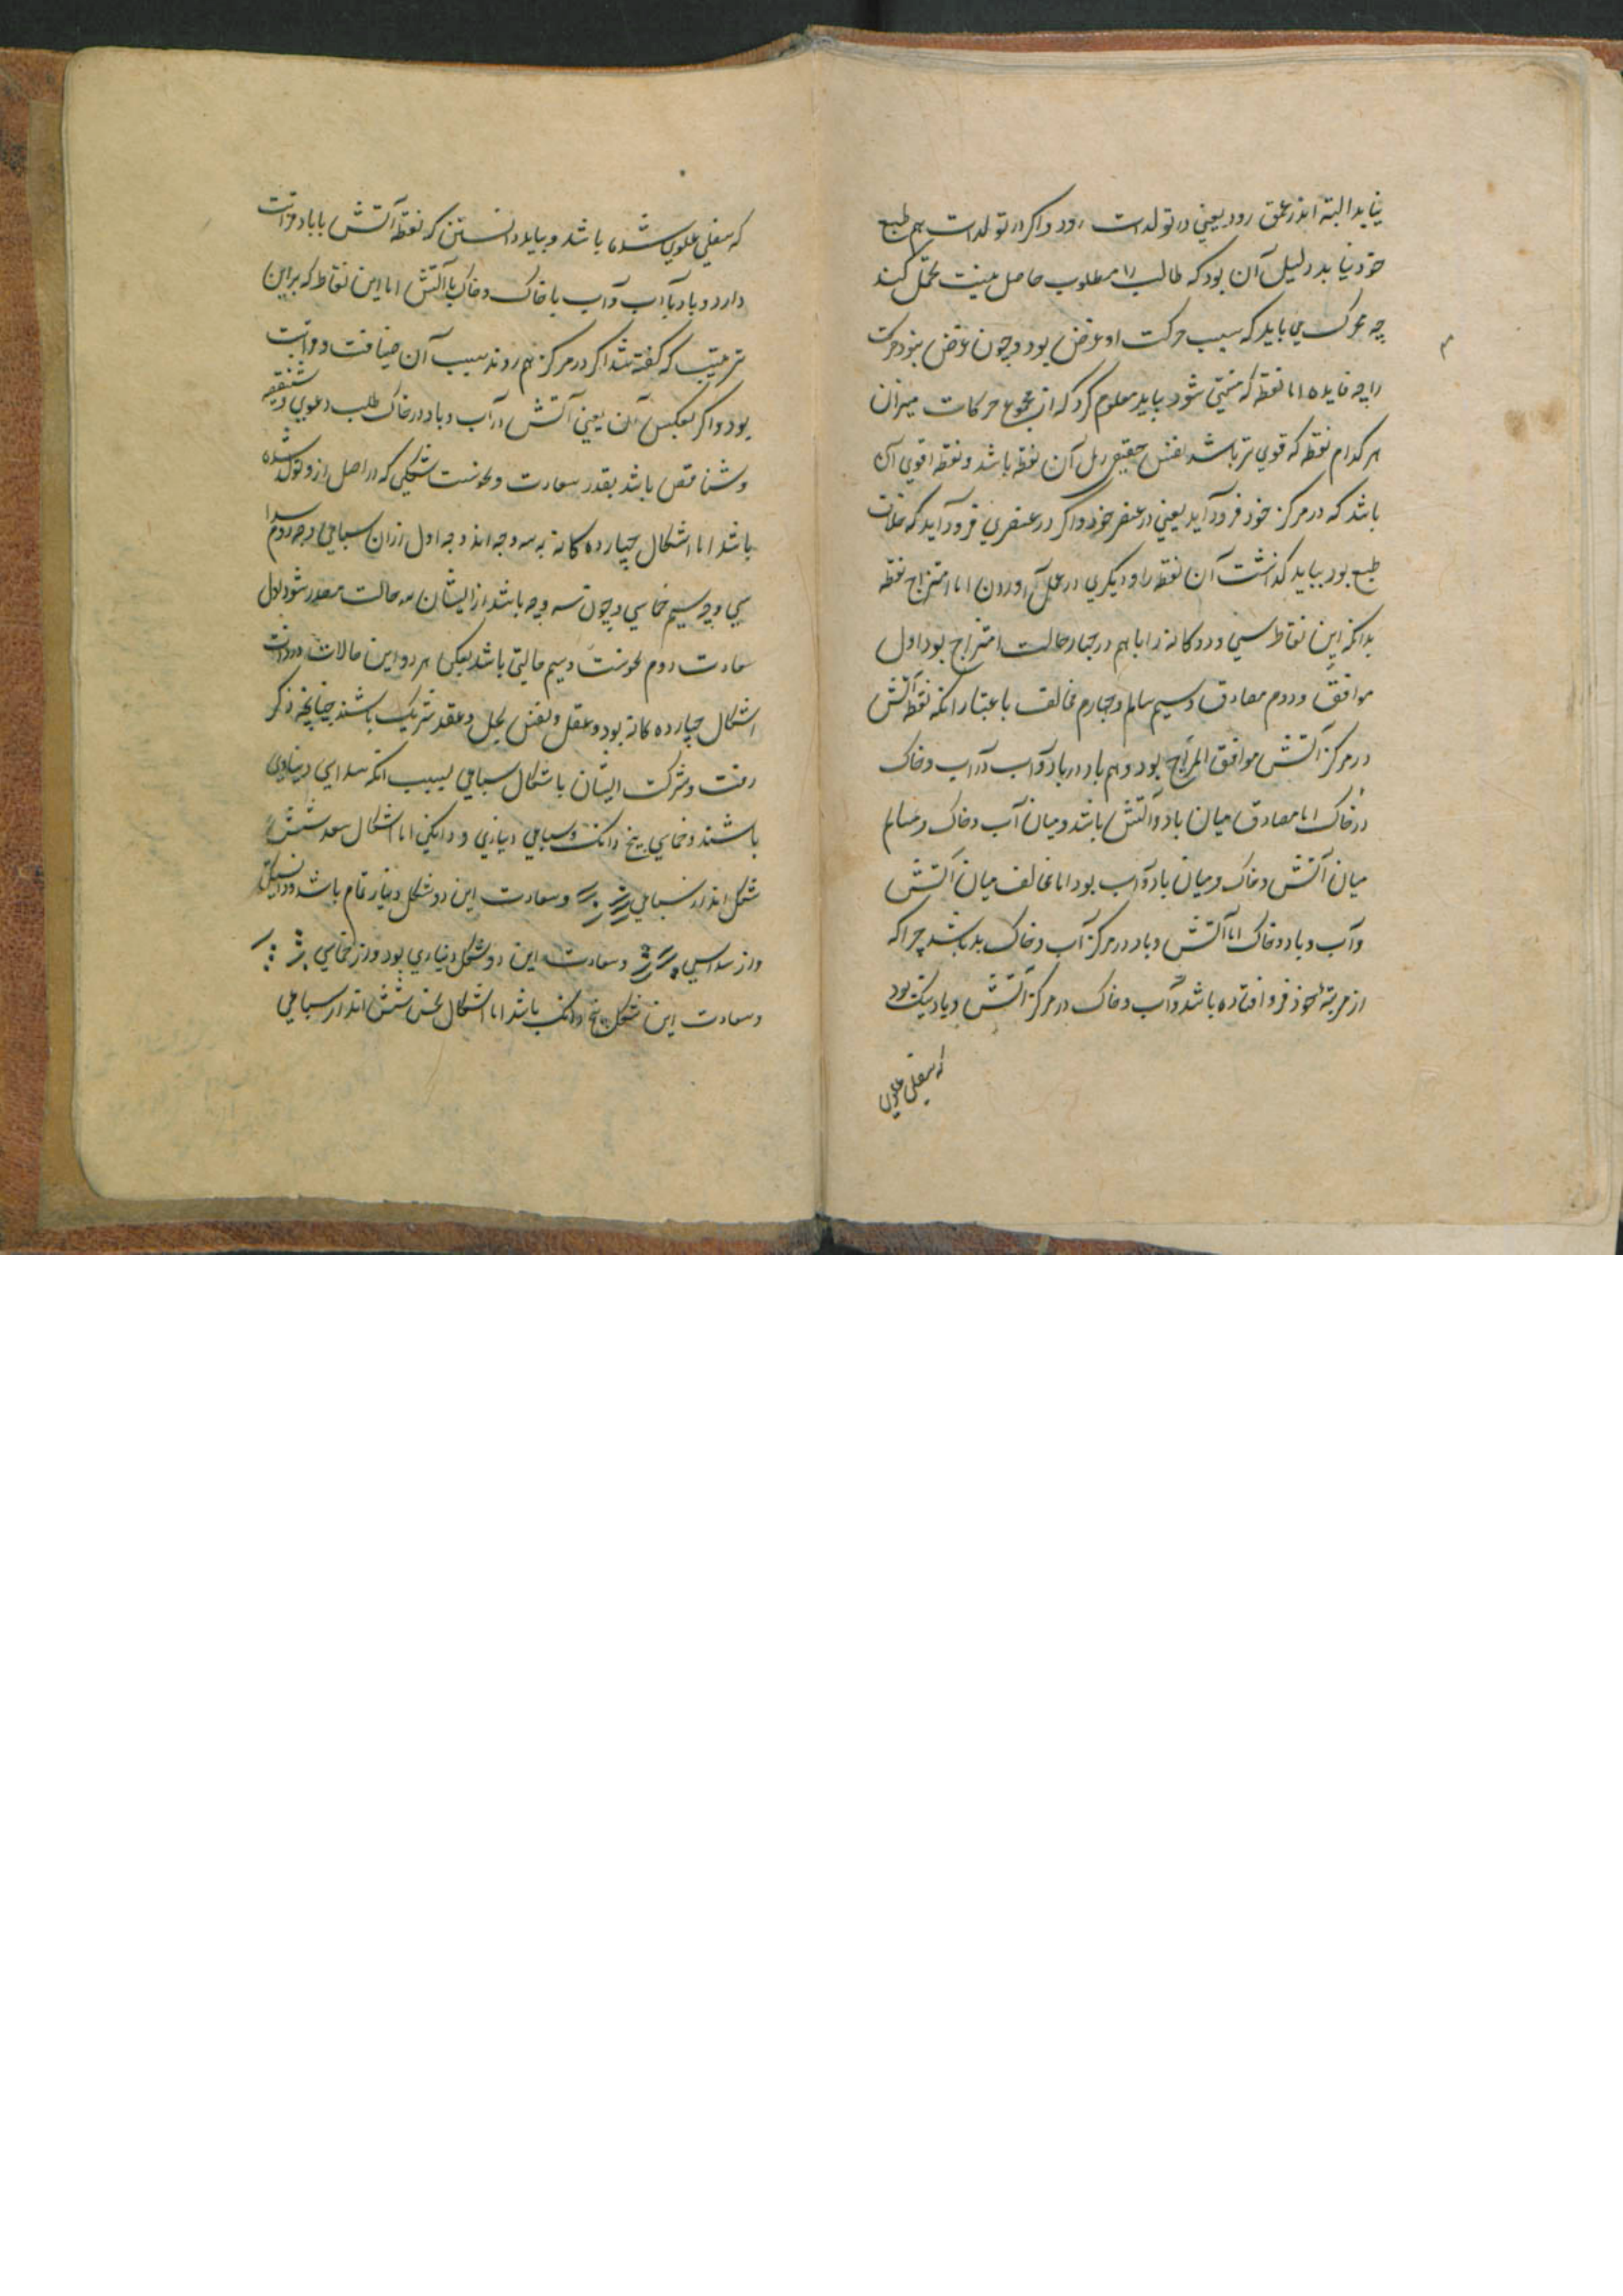 نیابد البته اندر عمق رود یعنی در تولدات رود و اکر در تولدات هم طبع
خود نیابد دلیل آن بود که طالب را مطلوب حاصل نیست تحمل کند
چه محرک می باید که سبب حرکت او غرض بود و چون غرض نبود حرکت
را چه فایده اما نقطه که منتهی شود بباید معلوم کرد که از مجموع حرکات میزان
هر کدام نقطه که قوی تر باشد نفس حقیقی رمل آن نقطه باشد و نقطه اقوی آن
باشد که در مرکز خود فرود آید یعنی در عنصر خود و اکر در عنصری فرود آید که خلاف
طبع بود بباید کذاشت آن نقطه را و دیکری در عمل آوردن اما امتزاج نقطه
بدانکه این نقاط سی و دو کانه را باهم در چهار حالت امتزاج بود اول
موافق و دوم مصادق و سیم سالم و چهارم مخالف باعتبار انکه نقطه آتش
در مرکز آتش موافق المزاج بود و هم باد در باد و آب در آب و خاک
در خاک اما مصادق میان باد و آتش باشد و میان آب و خاک و مسالم
میان آتش و خاک و میان باد و آب بود اما مخالف میان آتش
و آب و باد و خاک اما آتش و باد در مرکز آب و خاک بد باشد چرا که
از مرتبه خود فرو افتاده باشد و آب و خاک در مرکز آتش و باد نیک بود
که سفلی علوی
که سفلی علوی شده باشد و بباید دانستن که نقطه آتش با باد مزاجت
دارد و باد با آب و آب با خاک و خاک با آتش اما این نقاط که براین
ترتیب که کفته شد اکر در مرکز هم روند سبب آن ضیافت و
بود و اکر بعکس آن یعنی آتش در آب و باد در خاک طلب دعوی و
و تناقص باشد بقدر سعادت و نحوست شکلی که در اصل ازو تولد شده
باشد اما اشکال چهارده کانه به سه وجه اند وجه اول ازان سباعی وجه دوم سدا
سی وجه سیم خماسی و چون سه وجه باشد از ایشان سه حالت مصدر شود اول
سعادت دوم نحوست و سیم حالتی باشد بعکس هر دو این حالات در ذات
اشکال چهارده کانه بود و عقل و نفس بحل و عقد شریک باشند چنانچه ذکر
رفت و شرکت ایشان باشکال سباعی بسبب انکه سداسی دیناری
باشند و خماسی پنج دانک و سباعی دیناری و دانکی اما اشکال سعد شش
شکل اند از سباعی و سعادت این دو شکل دینار تمام باشد و دانکی
و از سداسی و سعادت این دو شکل دیناری بود و از خماسی
و سعادت این شکل پنج دانک باشد اما اشکال نحس شش اند از سباعی